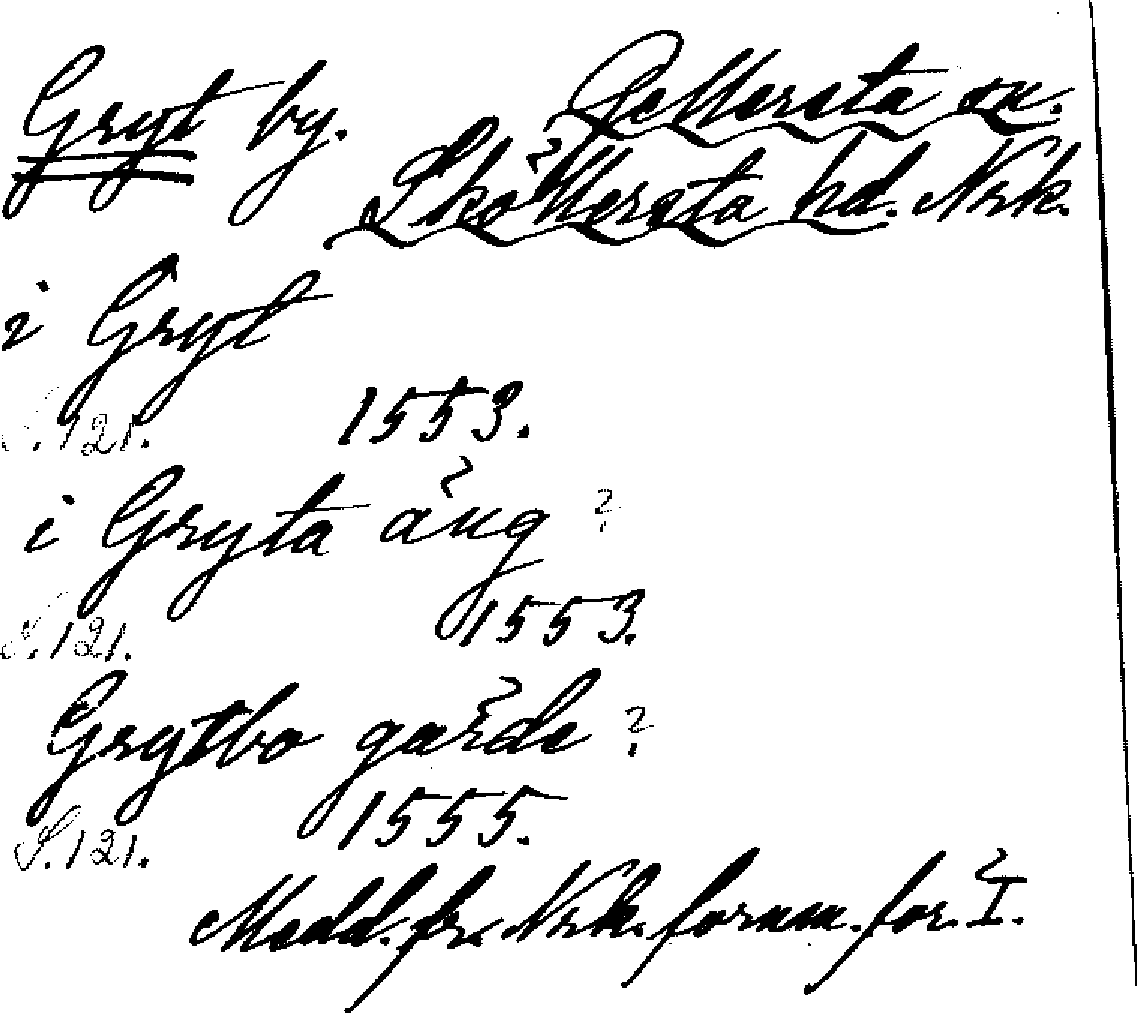 Gryt by. Gellersta sn.
Sköllersta hd. Nrk.
i Gryt
S.121. 1553.
i Gryta äng ?
S.121. 1553.
Grytbo gärde ?
S.121. 1555.
Medd. fr. Nrk. fornm. för. I.